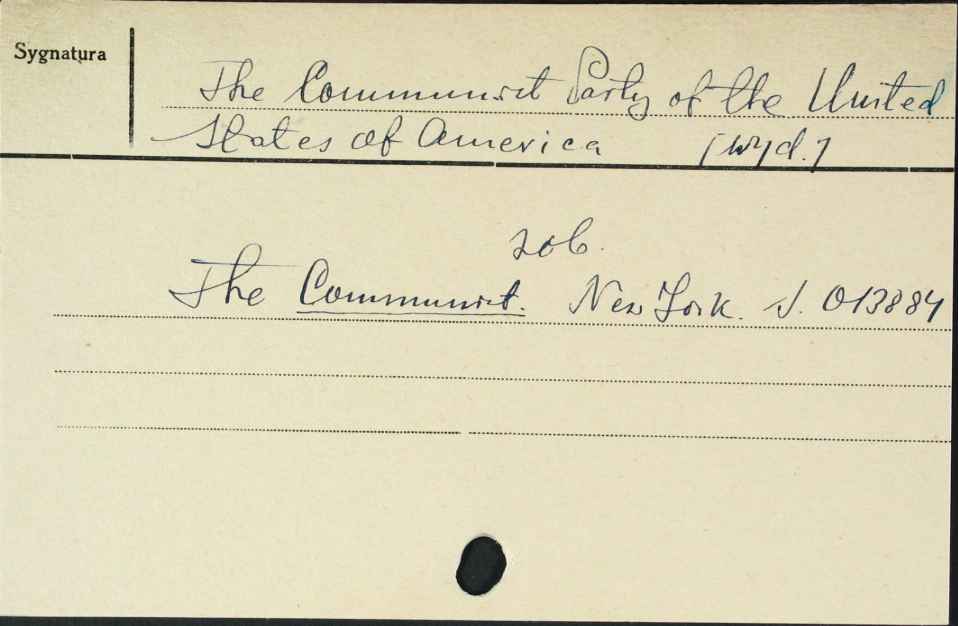 Sygnatura
The Communist Party of the United
States of America [wyd.]
zob.
The Communist. New York. J. 013884